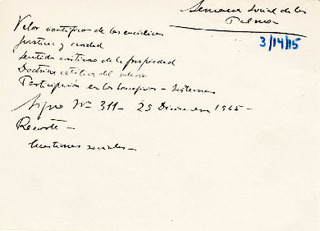 Semana Social de las
Palmas
3/14/15
Valor científico de las encíclicas
Justicia y caridad
Sentido cristiano de la propiedad
Doctrina católica del salario
Participación en los beneficios - Sistemas
Signo Nº 311 - 29 Diciembre 1945 -
Recorte -
Cuestiones sociales -